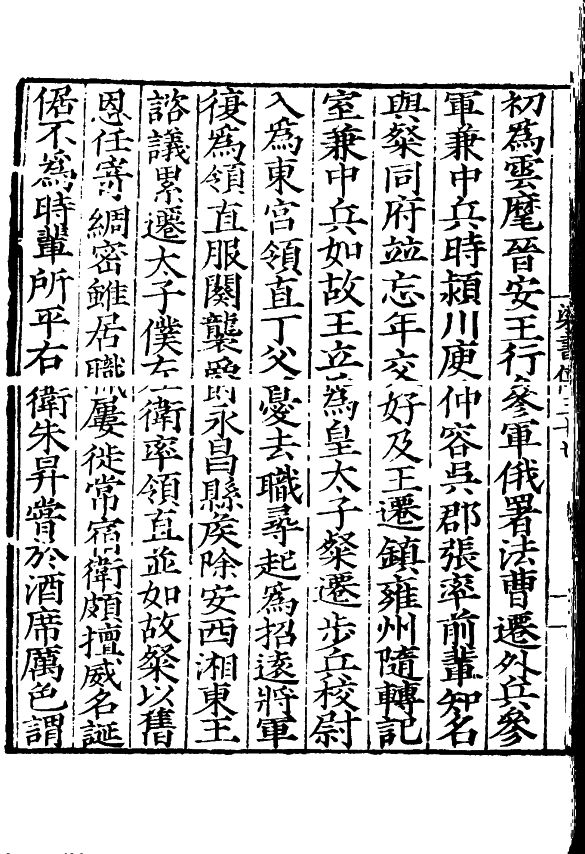 初爲雲麾晉安王行參軍俄署法曹遷外兵參
軍兼中兵時潁川庾仲容吳郡張率前輩知名
與粲同府竝忘年交好及王遷鎮雍州隨轉記
室兼中兵如故王立爲皇太子粲遷步兵校尉
入爲東宮領直丁父憂去職尋起爲招遠將軍
復爲領直服闋襲爵永昌縣侯除安西湘東王
諮議累遷太子僕左衛率領直並如故粲以舊
恩任寄綢密雖居職屢徙常宿衛頗擅威名誕
倨不爲時輩所平右衛朱异嘗於酒席厲色謂
梁書傳三十七